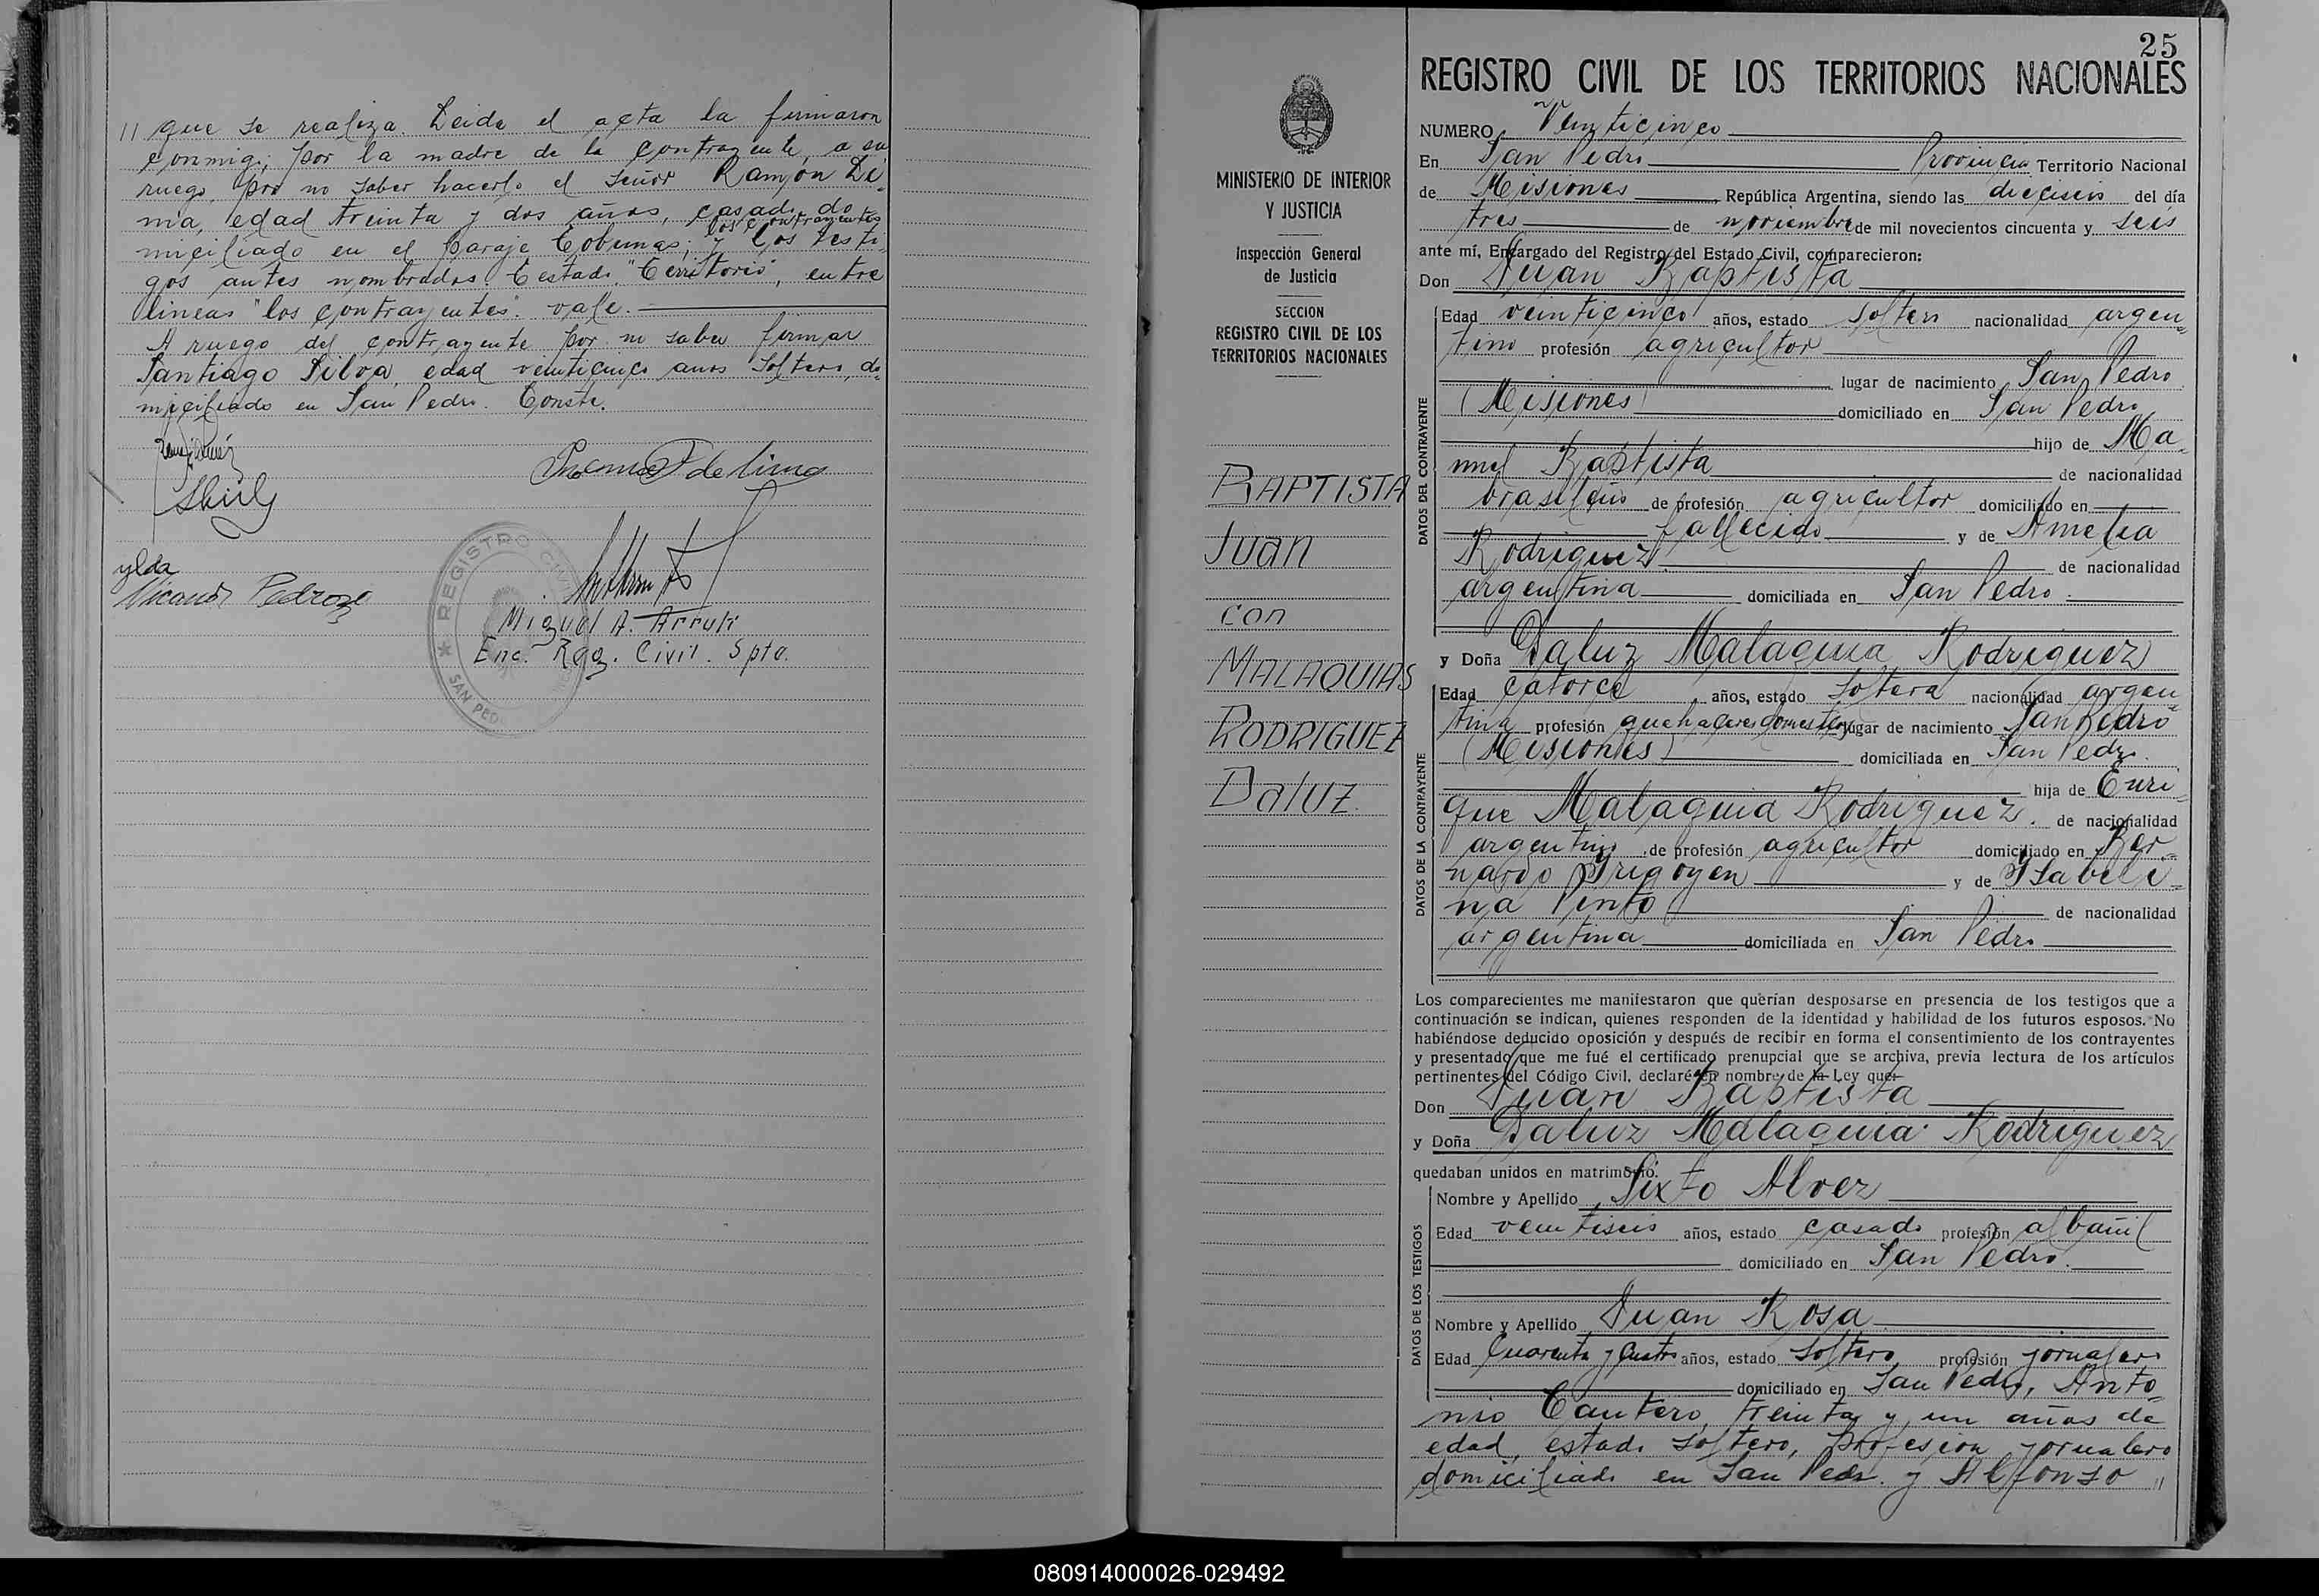 // que se realiza. Leida el acta la firmaron
conmigo; por la madre de la contrayente, a su
ruego, por no saber hacerlo el señor Ramón Li-
ma, edad treinta y dos años, casado, do-
los contrayentes
miciliado en el paraje Cobumas; y los testi-
gos antes nombrados. Testado "Territorio", entre
lineas "los contrayentes". vale.
A ruego del contrayente por no saber firmar
Santiago Silva, edad veinticinco años soltero, do-
miciliado en San Pedro. Conste.
ylda
Nicanor Pedrozo
REGISTRO CIVIL
SAN PEDRO
Miguel A. Arruti
Enc. Reg. Civil. Spto.
25
REGISTRO CIVIL DE LOS TERRITORIOS NACIONALES
MINISTERIO DE INTERIOR
Y JUSTICIA
Inspección General
de Justicia
SECCION
REGISTRO CIVIL DE LOS
TERRITORIOS NACIONALES
BAPTISTA
Juan
con
MALAQUIAS
RODRIGUEZ
Daluz
NUMERO Veinticinco
En San Pedro Provincia Territorio Nacional
de Misiones República Argentina, siendo las dieciseis del día
tres de noviembre de mil novecientos cincuenta y seis
ante mí, Encargado del Registro del Estado Civil, comparecieron:
Don Juan Baptista
DATOS DEL CONTRAYENTE
Edad veinticinco años, estado soltero nacionalidad argen-
tino profesión agricultor
lugar de nacimiento San Pedro
(Misiones) domiciliado en San Pedro
hijo de Ma-
nuel Baptista de nacionalidad
brasileño de profesión agricultor domiciliado en
fallecido y de Amelia
Rodriguez de nacionalidad
argentina domiciliada en San Pedro.
y Doña Daluz Malaquia Rodriguez
DATOS DE LA CONTRAYENTE
Edad catorce años, estado soltera nacionalidad argen-
tina profesión quehaceres domesticos lugar de nacimiento San Pedro
(Misiones) domiciliada en San Pedro.
hija de Enri-
que Malaquia Rodriguez. de nacionalidad
argentino de profesión agricultor domiciliado en Ber-
nardo Yrigoyen y de Ysabeli-
na Pinto de nacionalidad
argentina domiciliada en San Pedro
Los comparecientes me manifestaron que querían desposarse en presencia de los testigos que a
continuación se indican, quienes responden de la identidad y habilidad de los futuros esposos. No
habiéndose deducido oposición y después de recibir en forma el consentimiento de los contrayentes
y presentado que me fué el certificado prenupcial que se archiva, previa lectura de los artículos
pertinentes del Código Civil, declaré en nombre de la Ley que:
Don Juan Baptista
y Doña Daluz Malaquia Rodriguez
quedaban unidos en matrimonio.
DATOS DE LOS TESTIGOS
Nombre y Apellido Sixto Alvez
Edad veintiseis años, estado casado profesión albañil
domiciliado en San Pedro.
Nombre y Apellido Juan Rosa
Edad Cuarenta y cuatro años, estado soltero, profesión jornalero
domiciliado en San Pedro, Anto-
nio Cantero, treinta y un años de
edad, estado soltero, profesion jornalero
domiciliado en San Pedro. y Alfonso //
080914000026-029492